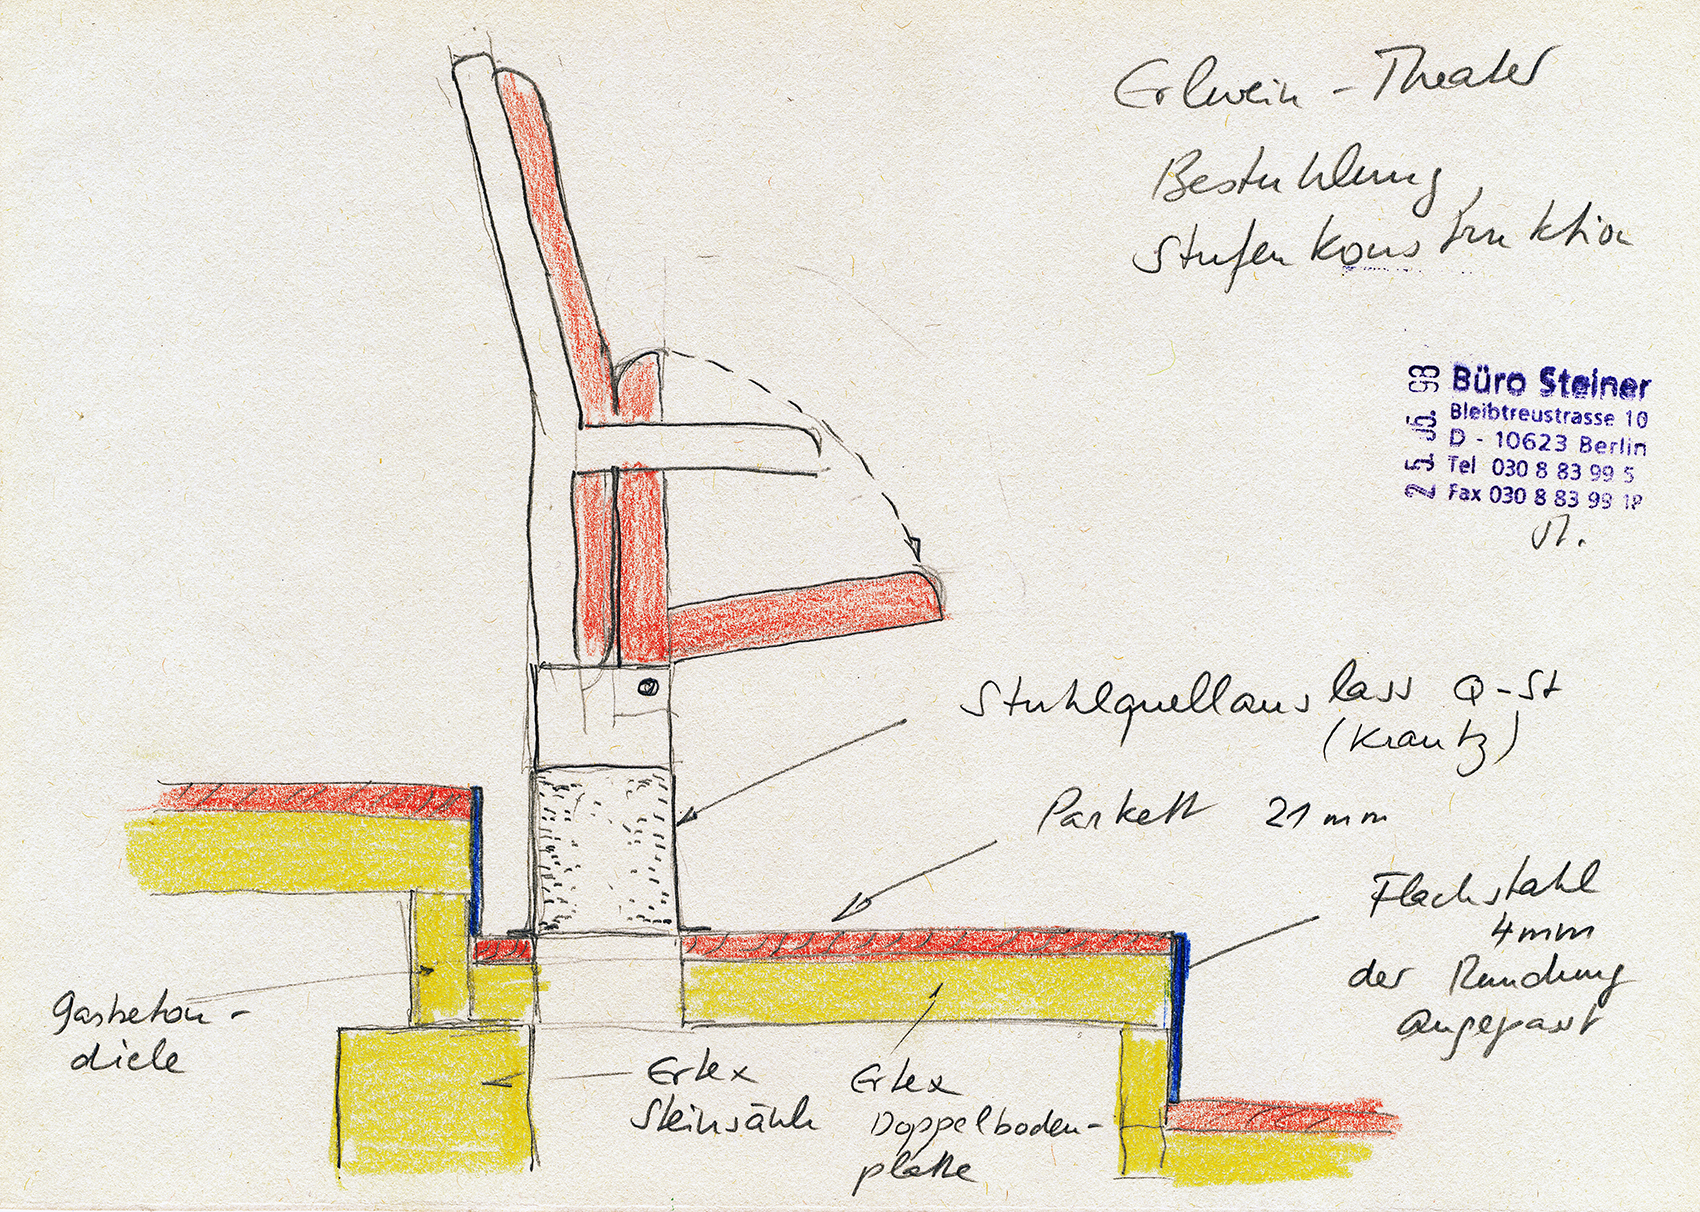 Erlwein - Theater
Bestuhlung,
Stufenkonstruktion
25. 93
Büro Steiner
Bleibtreustrasse 10
D - 10623 Berlin
Tel 030 8 83 99 5
Fax 030 8 83 99
St.
Stuhlquellauslass Q-St
(Krantz)
Parkett 21 mm
Flachstahl
4 mm
der Rundung
angepasst
Gasbeton-
diele
Ertex
Steinsäule
Ertex
Doppelboden-
platte